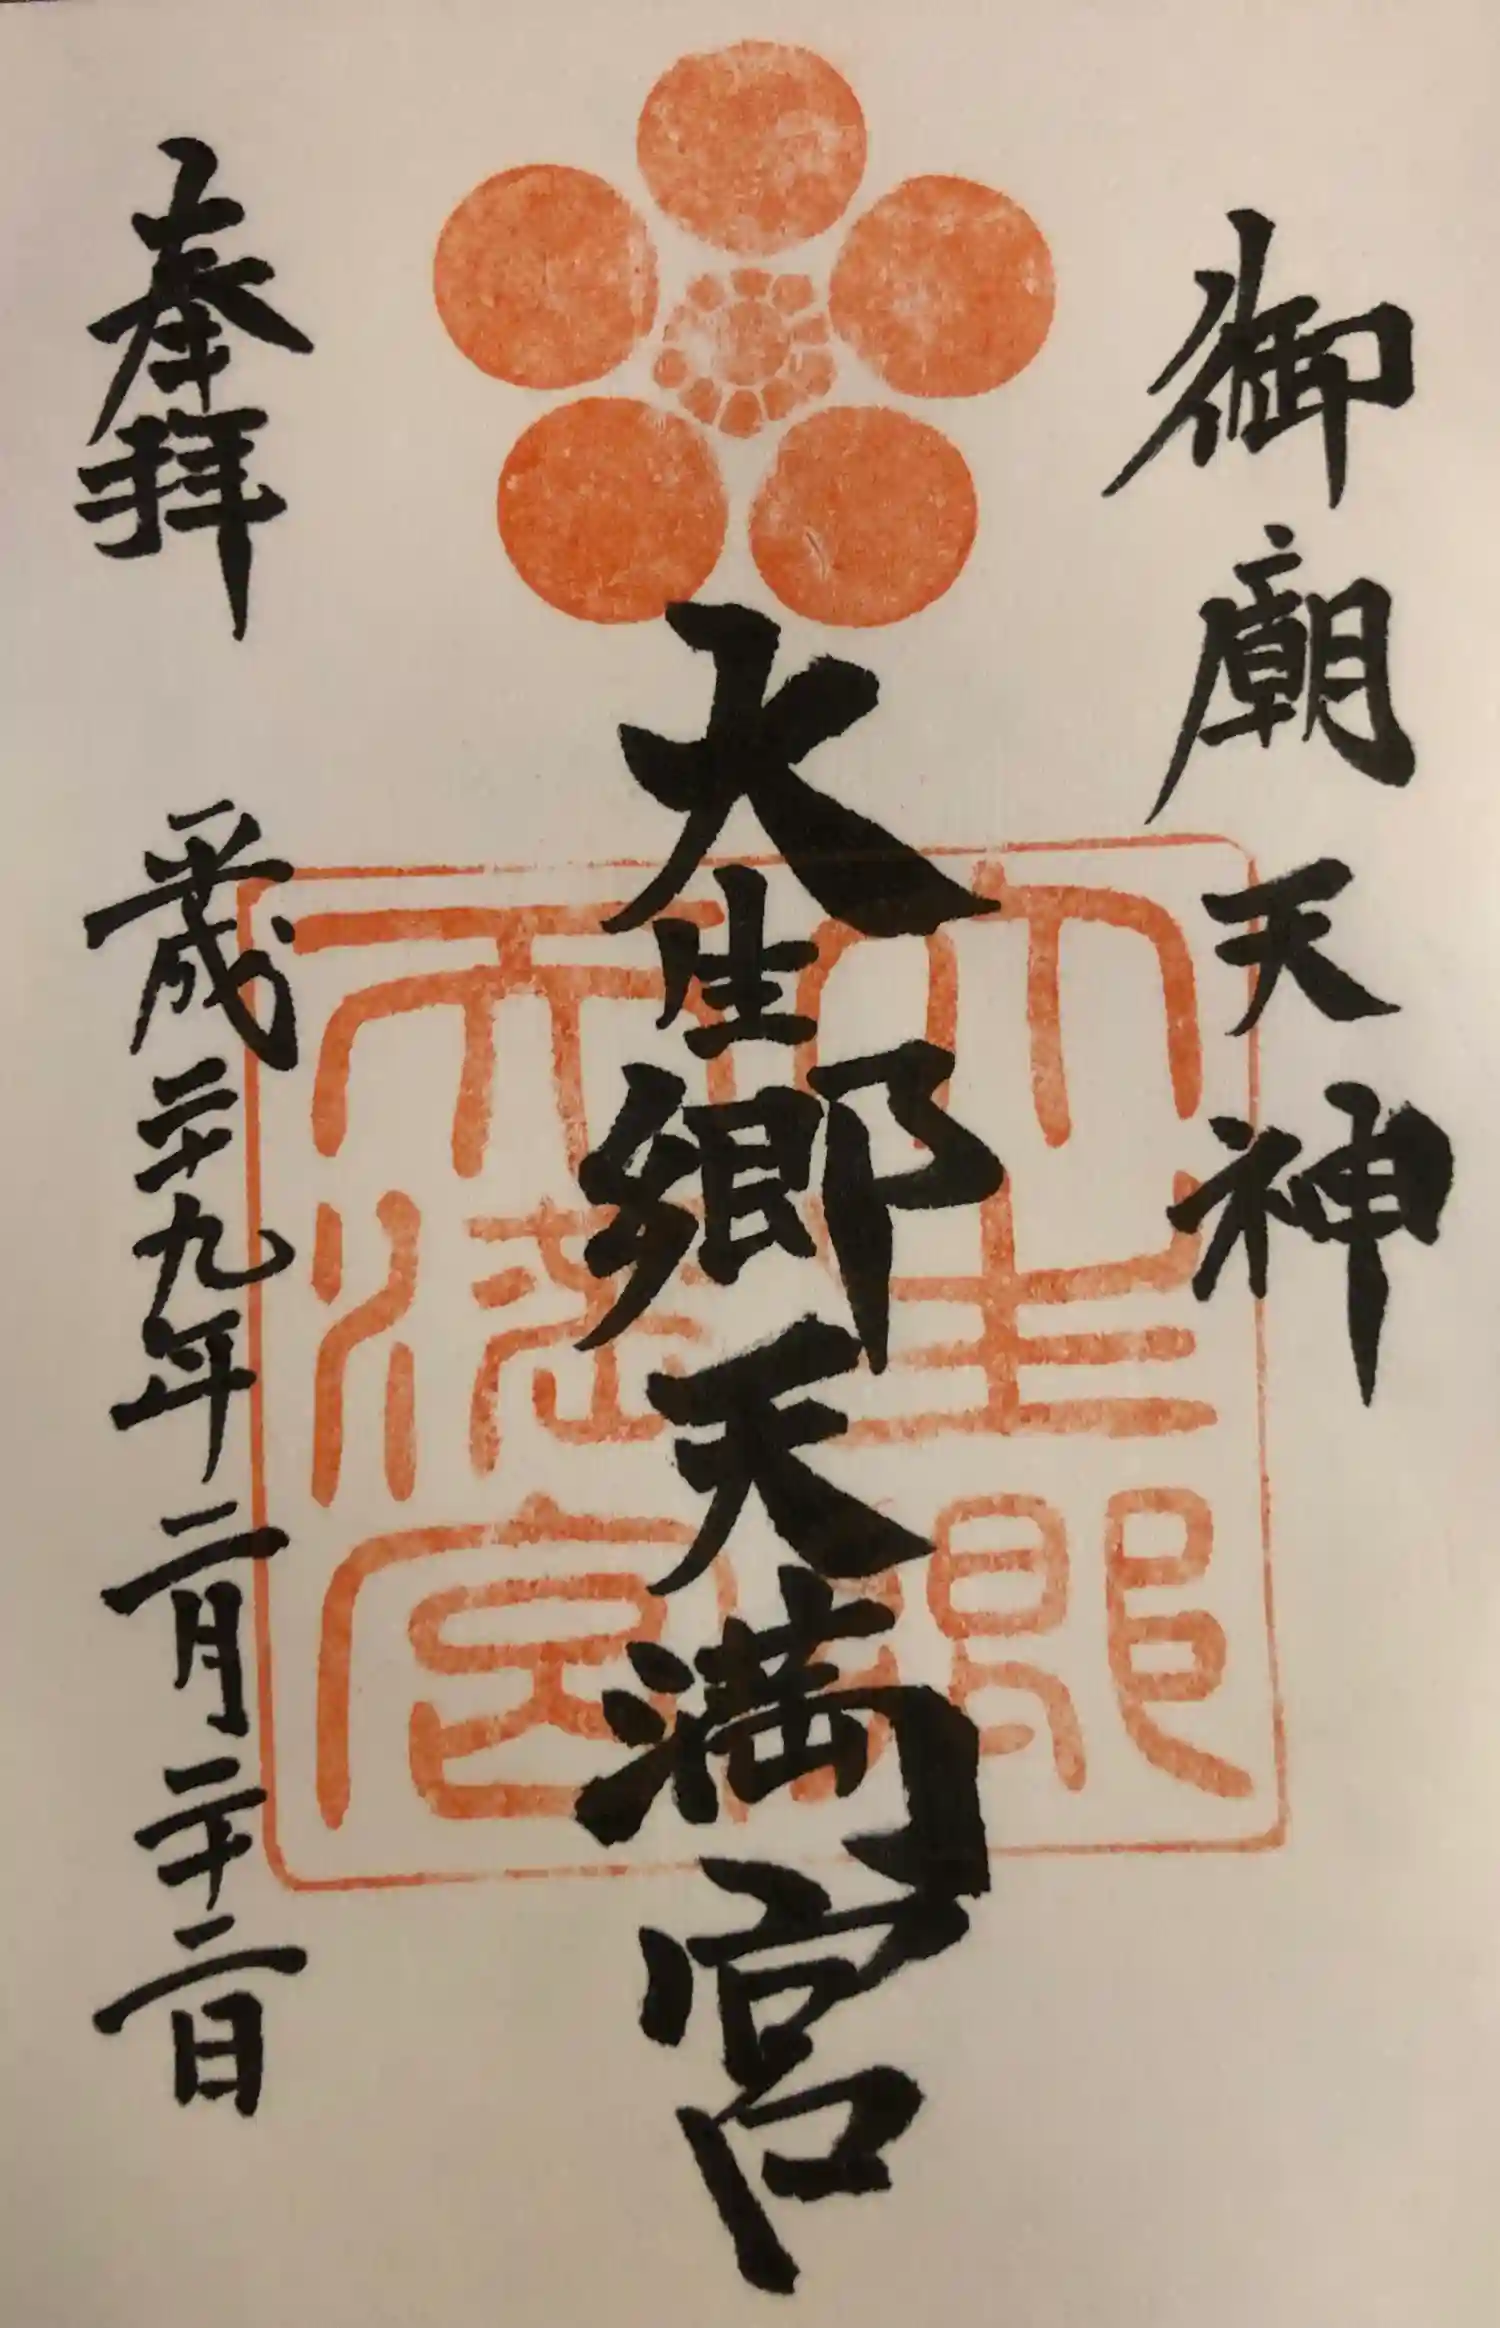 御廟天神
大生郷天満宮
奉拝 平成二十九年二月二十二日
大生郷
天満宮